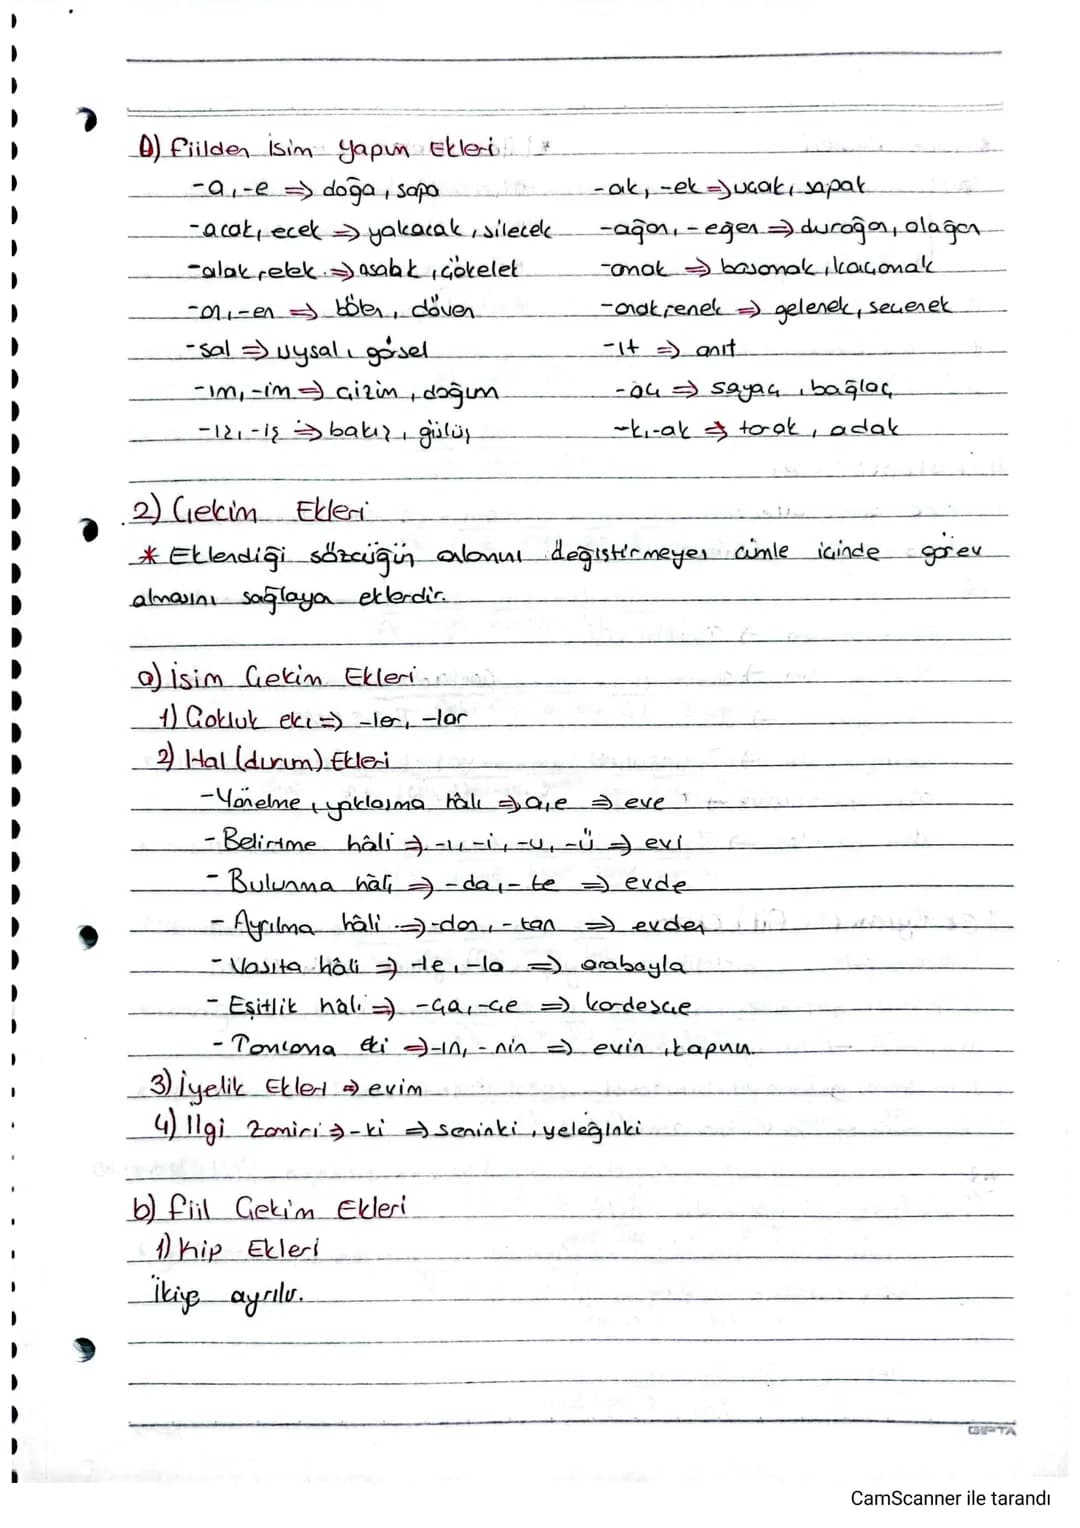 D) Fiilden İsim Yapım Ekleri
-a, -e => doğa, sapa
-ak, -ek => uçak, sapak
-acak, ecek => yakacak, silecek
-ağan, -eğen => durağan, olağan
-alak, elek => asalak, çökelek
-amak => basamak, kaçamak
-an, -en => döven
-anak, enek => gelenek, seçenek
-sal => uysal, görsel
-ıt => anıt
-ım, -im => çizim, doğum
-aç => sayaç, bağlaç
-ış, -iş => bakış, gülüş
-k, -ak => tarak, adak
2) Çekim Ekleri
* Eklendiği sözcüğün anlamını değiştirmeyen cümle içinde görev
almasını sağlayan eklerdir.
a) İsim Çekim Ekleri
1) Çokluk eki => -ler, -lar
2) Hal (durum) Ekleri
-Yönelme, yaklaşma hâli => a, e => eve
- Belirtme hâli => -ı, -i, -u, -ü => evi
- Bulunma hâli => -da, -te => evde
- Ayrılma hâli => -dan, -tan => evden
- Vasıta hâli => -le, -la => arabayla
- Eşitlik hâli => -ça, -çe => kardeşçe
- Tamlama eki => -ın, -nin => evin, kapının
3) İyelik Ekleri => evim
4) İlgi Zamiri => -ki => seninki, yeleğinki
b) Fiil Çekim Ekleri
1) Kip Ekleri
İkiye ayrılır.
GIPTA
CamScanner ile tarandı